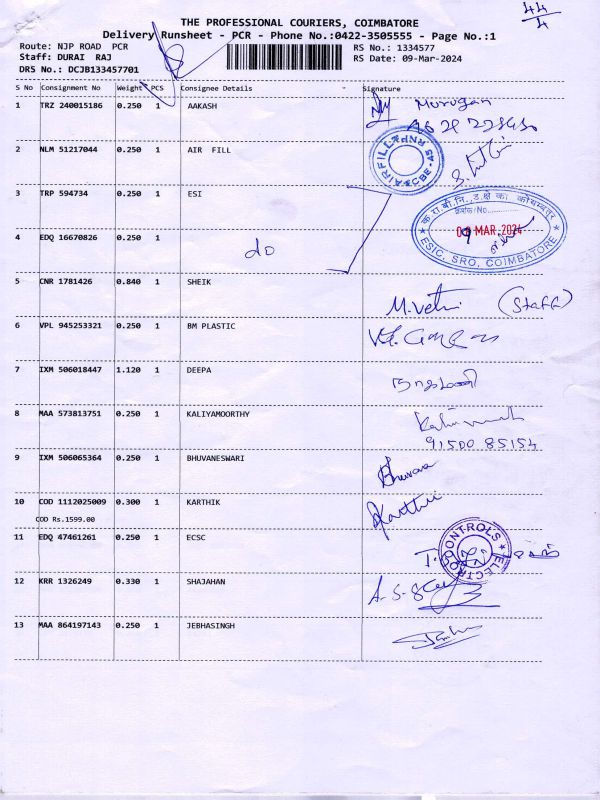 44
4
THE PROFESSIONAL COURIERS, COIMBATORE
Delivery Runsheet - PCR - Phone No.:0422-3505555 - Page No.:1
Route: NJP ROAD PCR
RS No.: 1334577
Staff: DURAI RAJ
RS Date: 09-Mar-2024
DRS No.: DCJB133457701
S No Consignment No Weight PCS Consignee Details - Signature
1 TRZ 240015186 0.250 1 AAKASH Murugan
2 NLM 51217044 0.250 1 AIR FILL
AIRFILL CBE-45 RNP
3 TRP 594734 0.250 1 ESI
क.रा.बी.नि., उ.क्षे.का. कोयम्बत्तूर
क्रमांक/No.
09 MAR 2024
ESIC, SRO, COIMBATORE
4 EDQ 16670826 0.250 1 do
5 CNR 1781426 0.840 1 SHEIK M.Vetri (Staff)
6 VPL 945253321 0.250 1 BM PLASTIC
7 IXM 506018447 1.120 1 DEEPA
8 MAA 573813751 0.250 1 KALIYAMOORTHY
91500 85154
9 IXM 506065364 0.250 1 BHUVANESWARI Bhuvana
10 COD 1112025009 0.300 1 KARTHIK Karthi
COD Rs.1599.00
11 EDQ 47461261 0.250 1 ECSC
ELECTRO CONTROLS
12 KRR 1326249 0.330 1 SHAJAHAN
13 MAA 864197143 0.250 1 JEBHASINGH